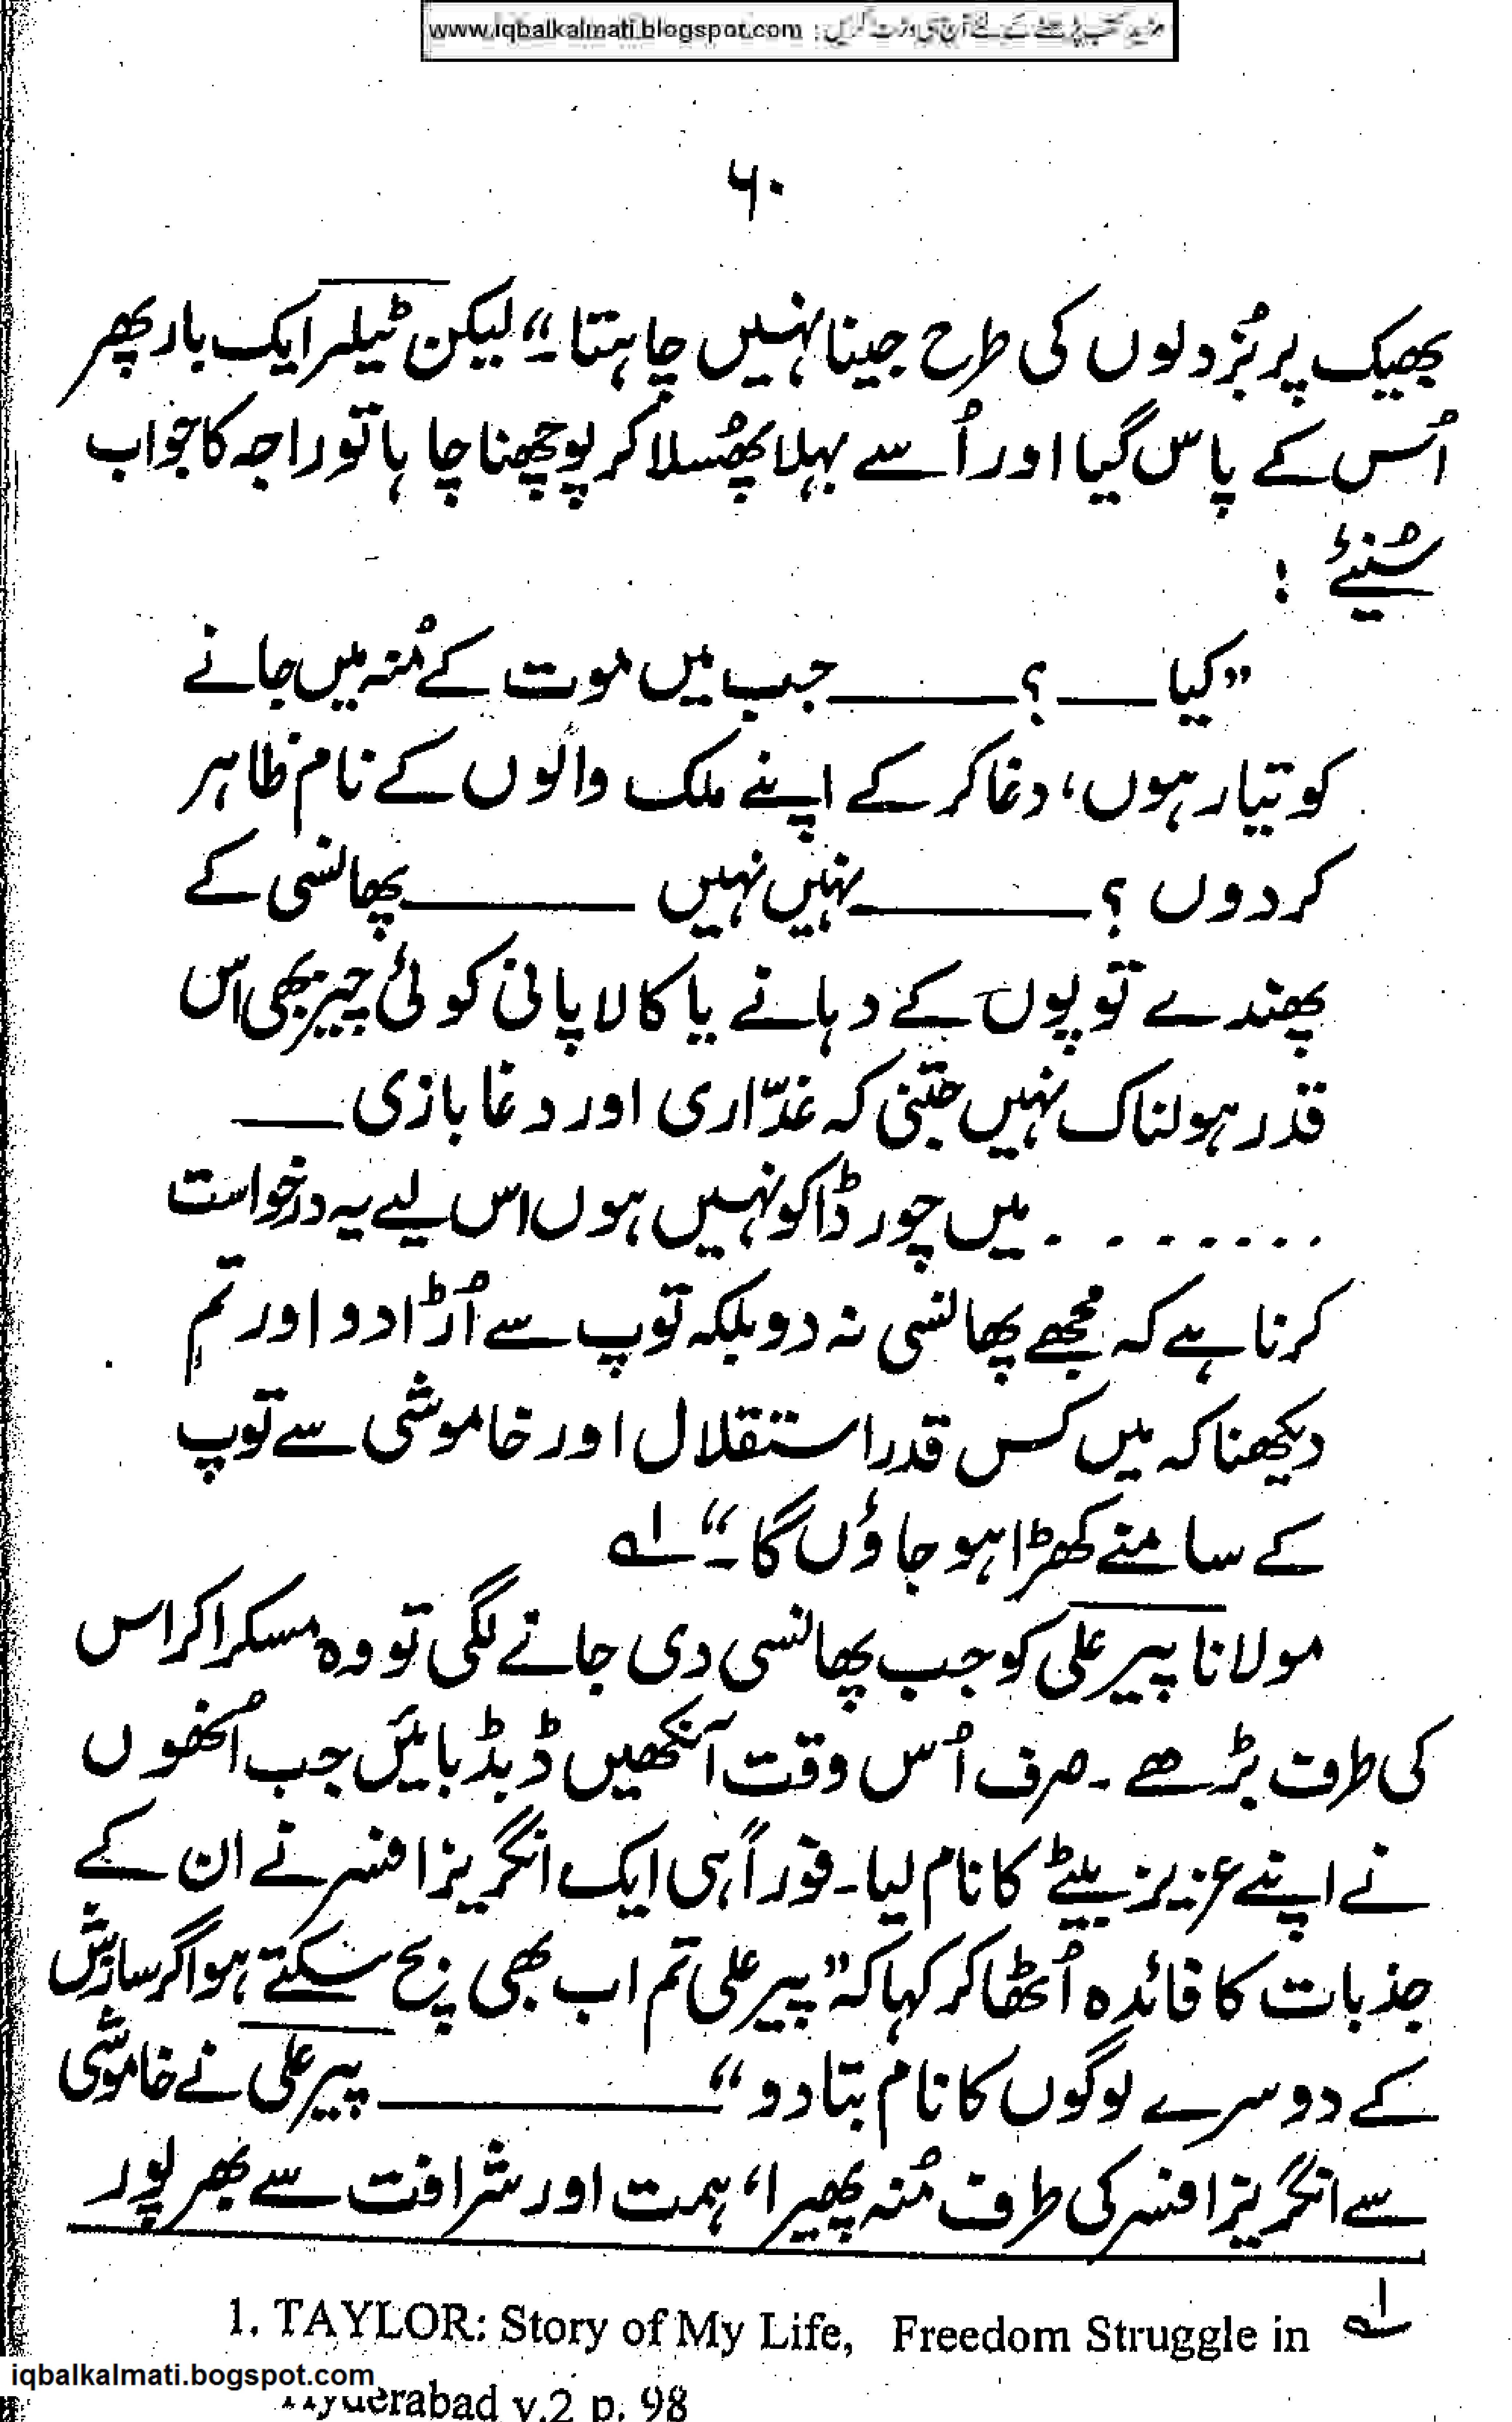 مزید کتب پڑھنے کے لئے آج ہی وزٹ کریں : www.iqbalkalmati.blogspot.com
۶۰
بھیک پر بُزدلوں کی طرح جینا نہیں چاہتا۔“ لیکن ٹیلر ایک بار پھر
اُس کے پاس گیا اور اُسے بہلا پھُسلا کر پوچھنا چاہا تو راجہ کا جواب
سُنیئے :
”کیا ــــ ؟ ــــــــ جب میں موت کے مُنہ میں جانے
کو تیار ہوں، دغا کر کے اپنے ملک والوں کے نام ظاہر
کر دوں ؟ ــــــــ نہیں نہیں ــــــــ پھانسی کے
پھندے توپوں کے دہانے یا کالا پانی کوئی چیز بھی اس
قدر ہولناک نہیں جتنی کہ غدّاری اور دغا بازی ــــ
. . . . . . . . میں چور ڈاکو نہیں ہوں اس لیے یہ درخواست
کرنا ہے کہ مجھے پھانسی نہ دو بلکہ توپ سے اُڑا دو اور تم
دیکھنا کہ میں کس قدر استقلال اور خاموشی سے توپ
کے سامنے کھڑا ہو جاؤں گا۔“ ۱؎
مولانا پیر علی کو جب پھانسی دی جانے لگی تو وہ مسکرا کر اس
کی طرف بڑھے۔ صرف اُس وقت آنکھیں ڈبڈبائیں جب اُنھوں
نے اپنے عزیز بیٹے کا نام لیا۔ فوراً ہی ایک انگریز افسر نے ان کے
جذبات کا فائدہ اُٹھا کر کہا کہ ”پیر علی تم اب بھی بچ سکتے ہو اگر سازش
کے دوسرے لوگوں کا نام بتا دو“ ــــــــــــ پیر علی نے خاموشی
سے انگریز افسر کی طرف مُنہ پھیرا، ہمت اور شرافت سے بھر پور
۱؎ 1. TAYLOR: Story of My Life, Freedom Struggle in
Hyderabad v.2 p. 98
iqbalkalmati.bogspot.com